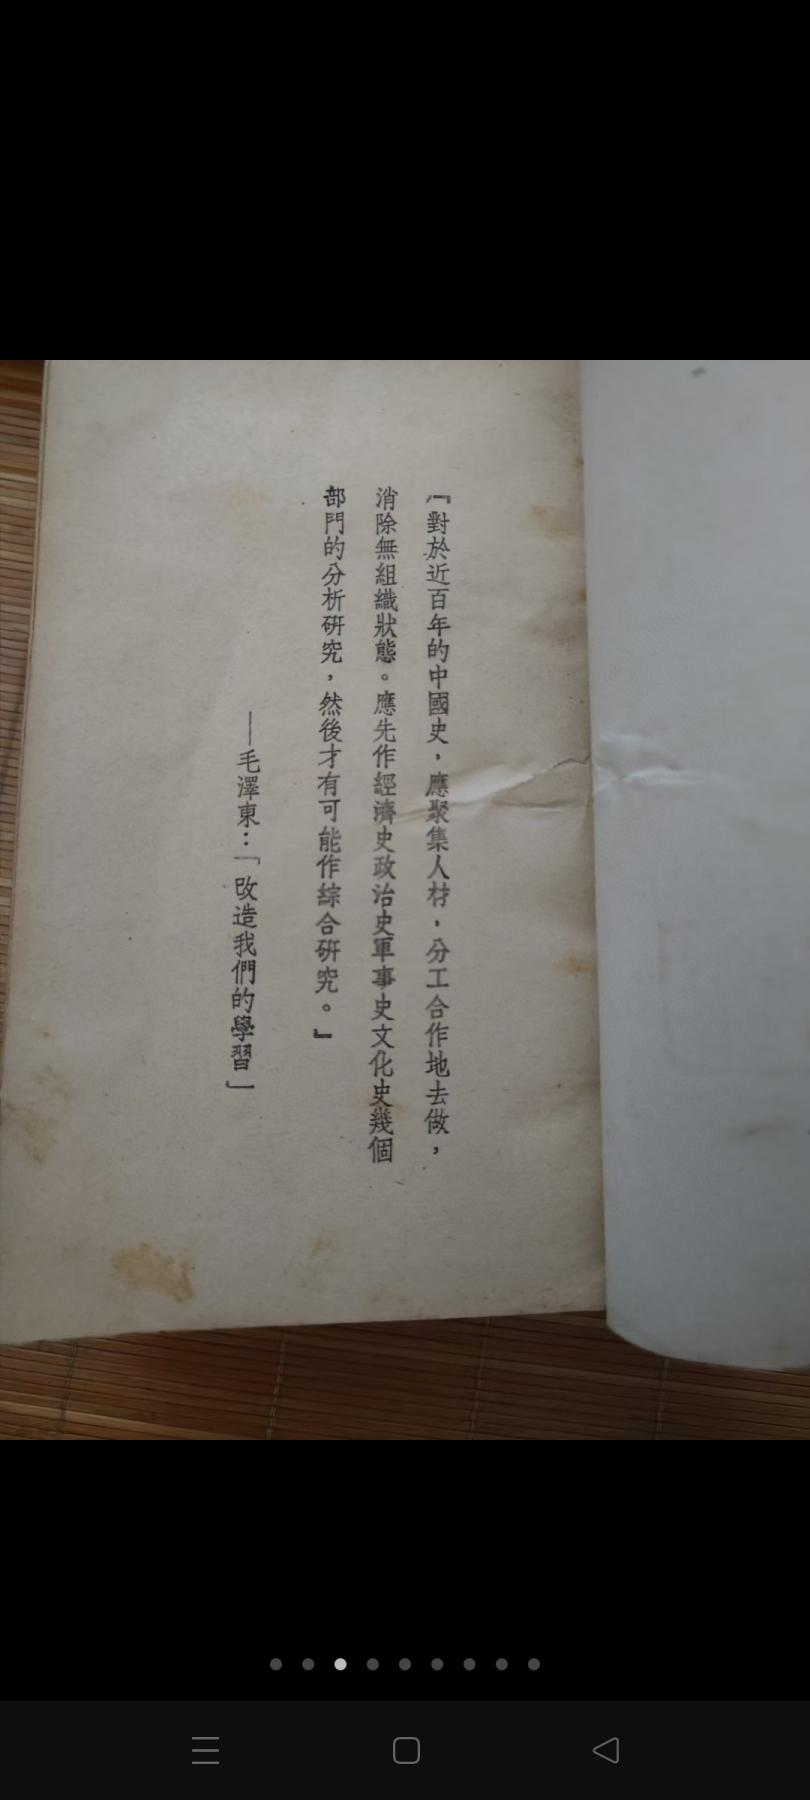 『對於近百年的中國史，應聚集人材，分工合作地去做，
消除無組織狀態。應先作經濟史政治史軍事史文化史幾個
部門的分析研究，然後才有可能作綜合研究。』
——毛澤東：「改造我們的學習」